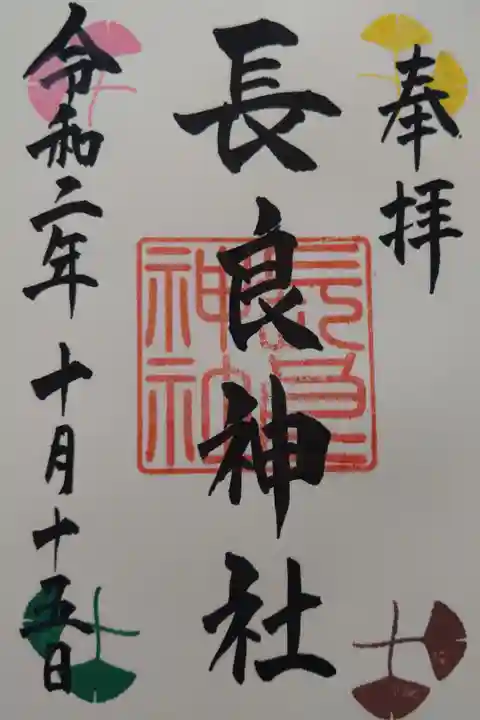 奉拝
長良神社
令和二年十月十五日
長良
神社